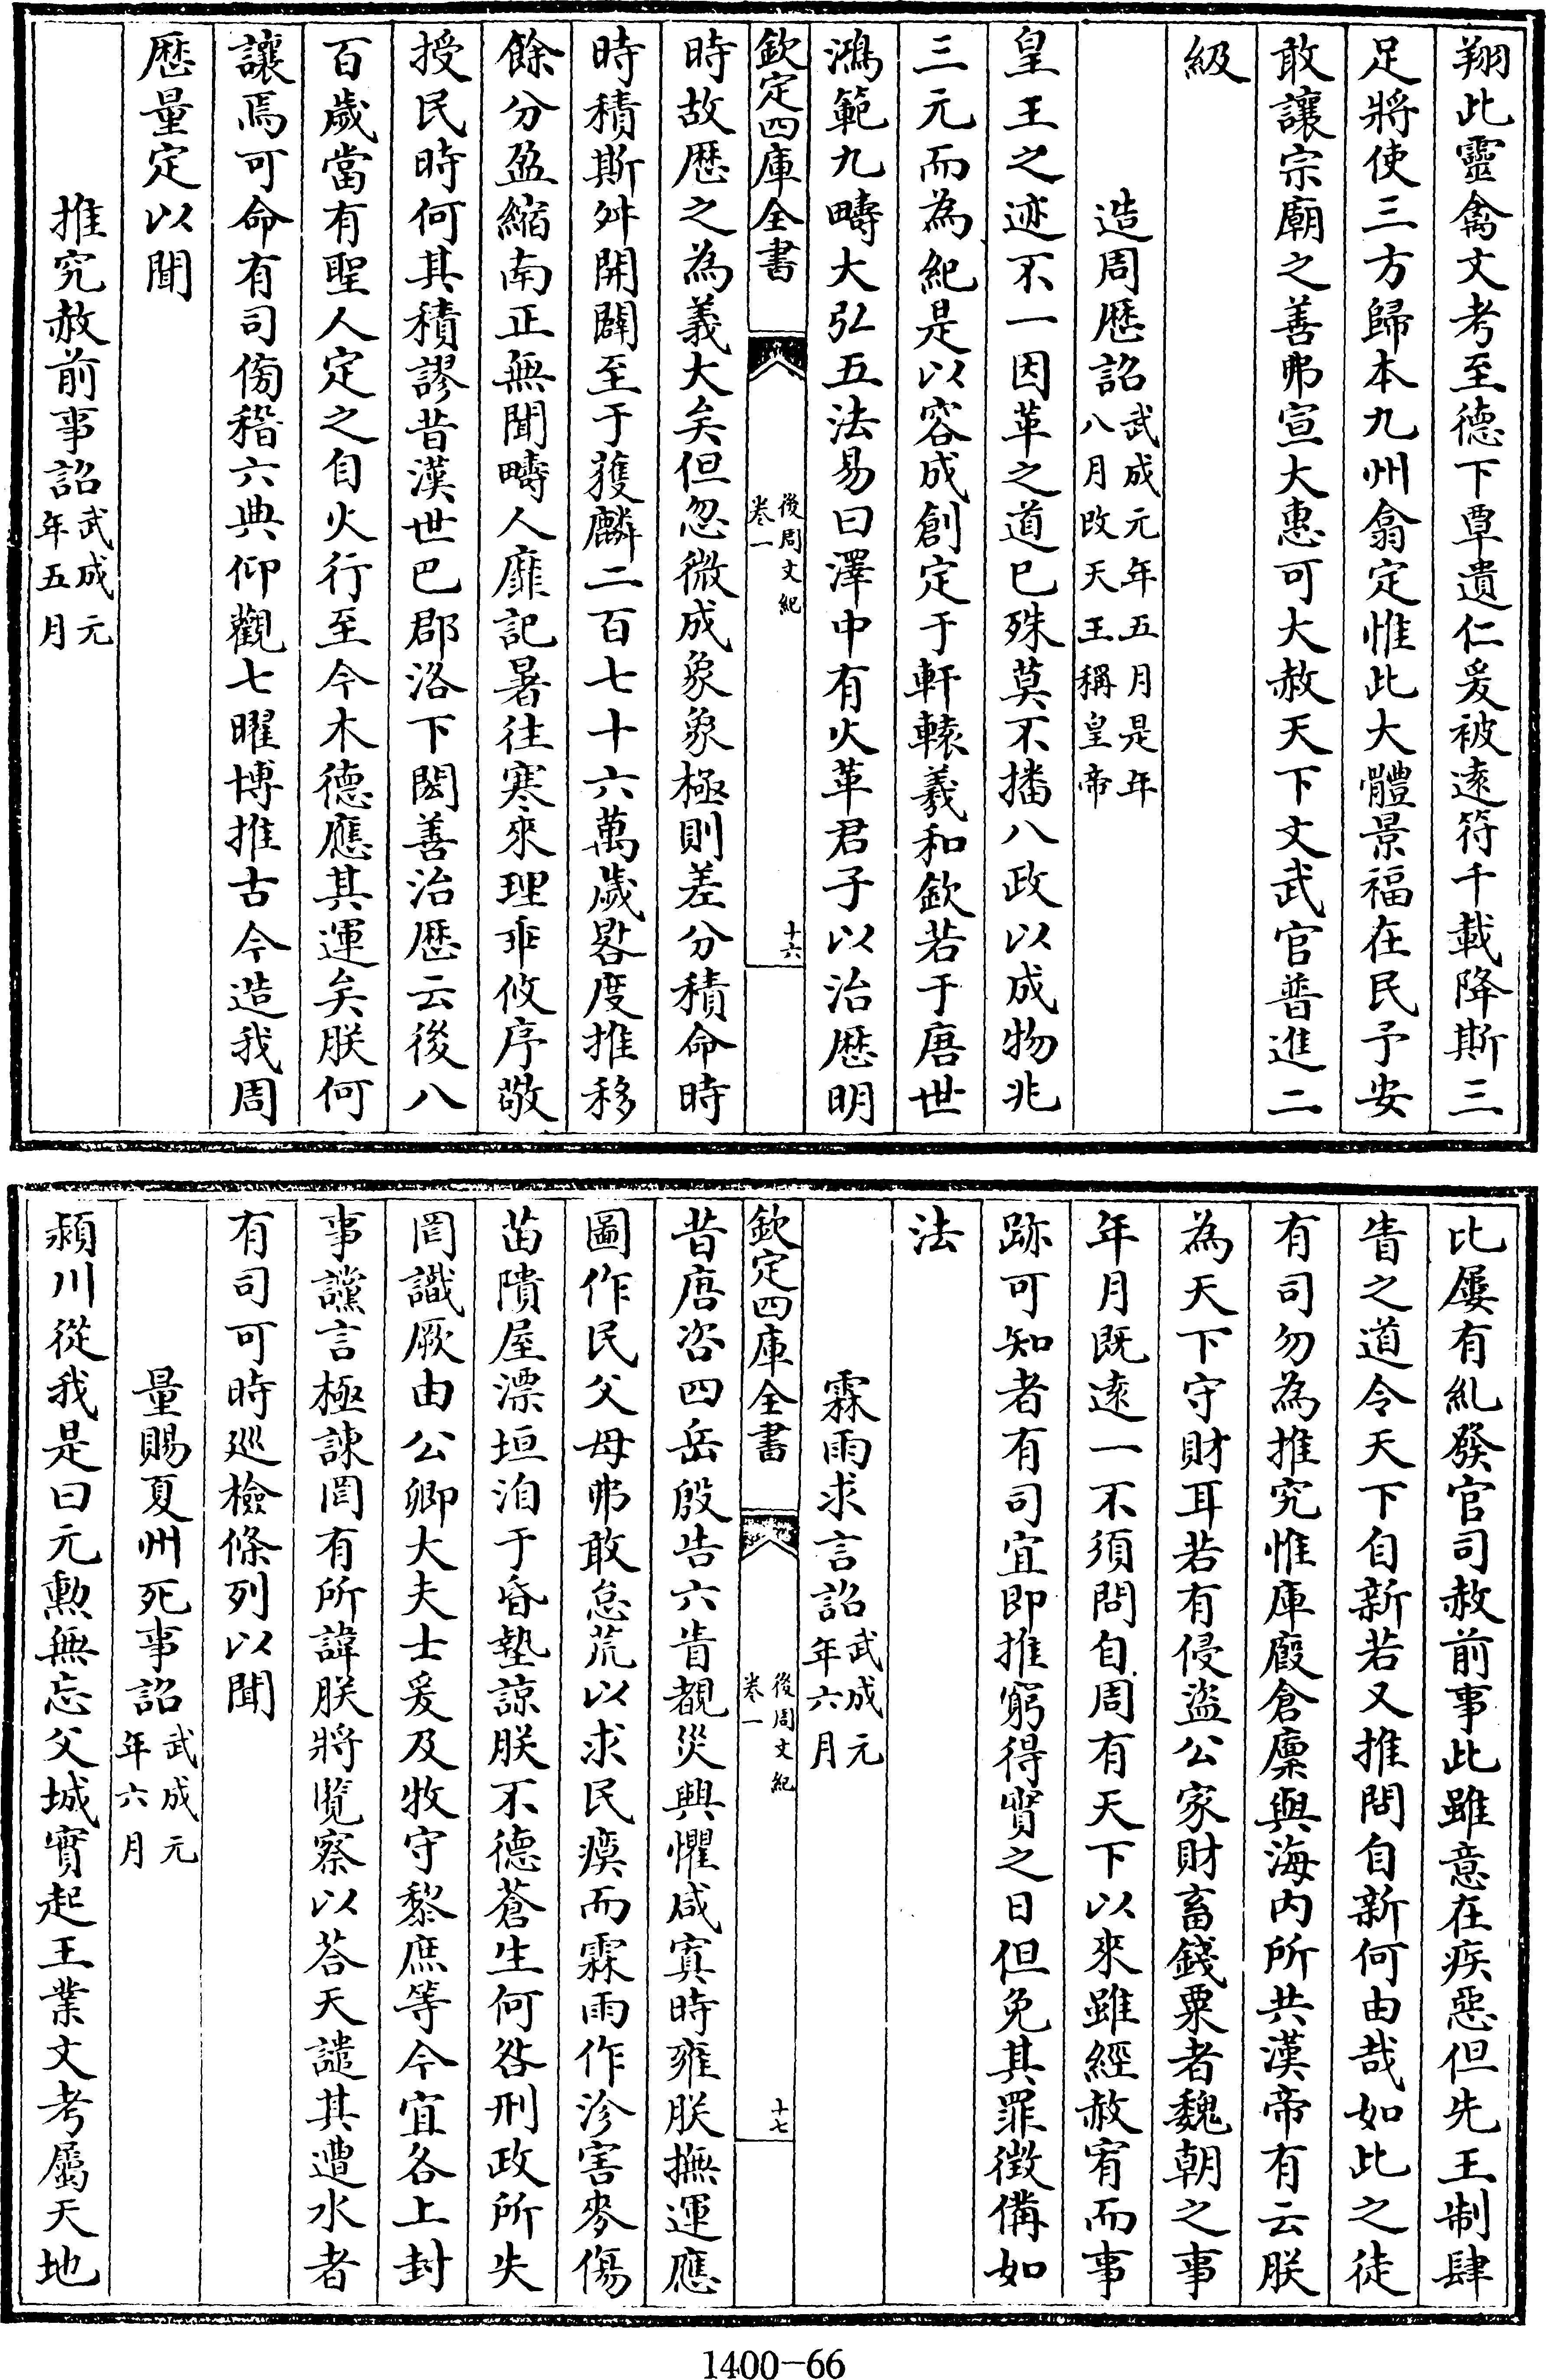 翔此靈禽文考至德下覃遺仁爰被遠符千載降斯三
足將使三方歸本九州翕定惟此大體景福在民予安
敢讓宗廟之善弗宣大惠可大赦天下文武官普進二
級
造周歷詔武成元年五月是年八月改天王稱皇帝
皇王之迹不一因革之道已殊莫不播八政以成物兆
三元而為紀是以容成創定于軒轅羲和欽若于唐世
鴻範九疇大弘五法易曰澤中有火革君子以治歷明
欽定四庫全書 後周文紀卷一 十六
時故歷之為義大矣但忽微成象象極則差分積命時
時積斯舛開闢至于獲麟二百七十六萬歲晷度推移
餘分盈縮南正無聞疇人靡記暑往寒來理乖攸序敬
授民時何其積謬昔漢世巴郡洛下閎善治歷云後八
百歲當有聖人定之自火行至今木德應其運矣朕何
讓焉可命有司傍稽六典仰觀七曜博推古今造我周
歷量定以聞
推究赦前事詔武成元年五月
比屢有糺發官司赦前事此雖意在疾惡但先王制肆
眚之道令天下自新若又推問自新何由哉如此之徒
有司勿為推究惟庫廄倉廩與海內所共漢帝有云朕
為天下守財耳若有侵盜公家財畜錢粟者魏朝之事
年月既遠一不須問自周有天下以來雖經赦宥而事
跡可知者有司宜即推窮得實之日但免其罪徵備如
法
霖雨求言詔武成元年六月
欽定四庫全書 後周文紀卷一 十七
昔唐咨四岳殷告六眚覩災興懼咸寘時雍朕撫運應
圖作民父母弗敢怠荒以求民瘼而霖雨作沴害麥傷
苗隤屋漂垣洎于昏墊諒朕不德蒼生何咎刑政所失
罔識厥由公卿大夫士爰及牧守黎庶等今宜各上封
事讜言極諫罔有所諱朕將覽察以荅天譴其遭水者
有司可時巡檢條列以聞
量賜夏州死事詔武成元年六月
潁川從我是曰元勲無忘父城實起王業文考屬天地
1400-66